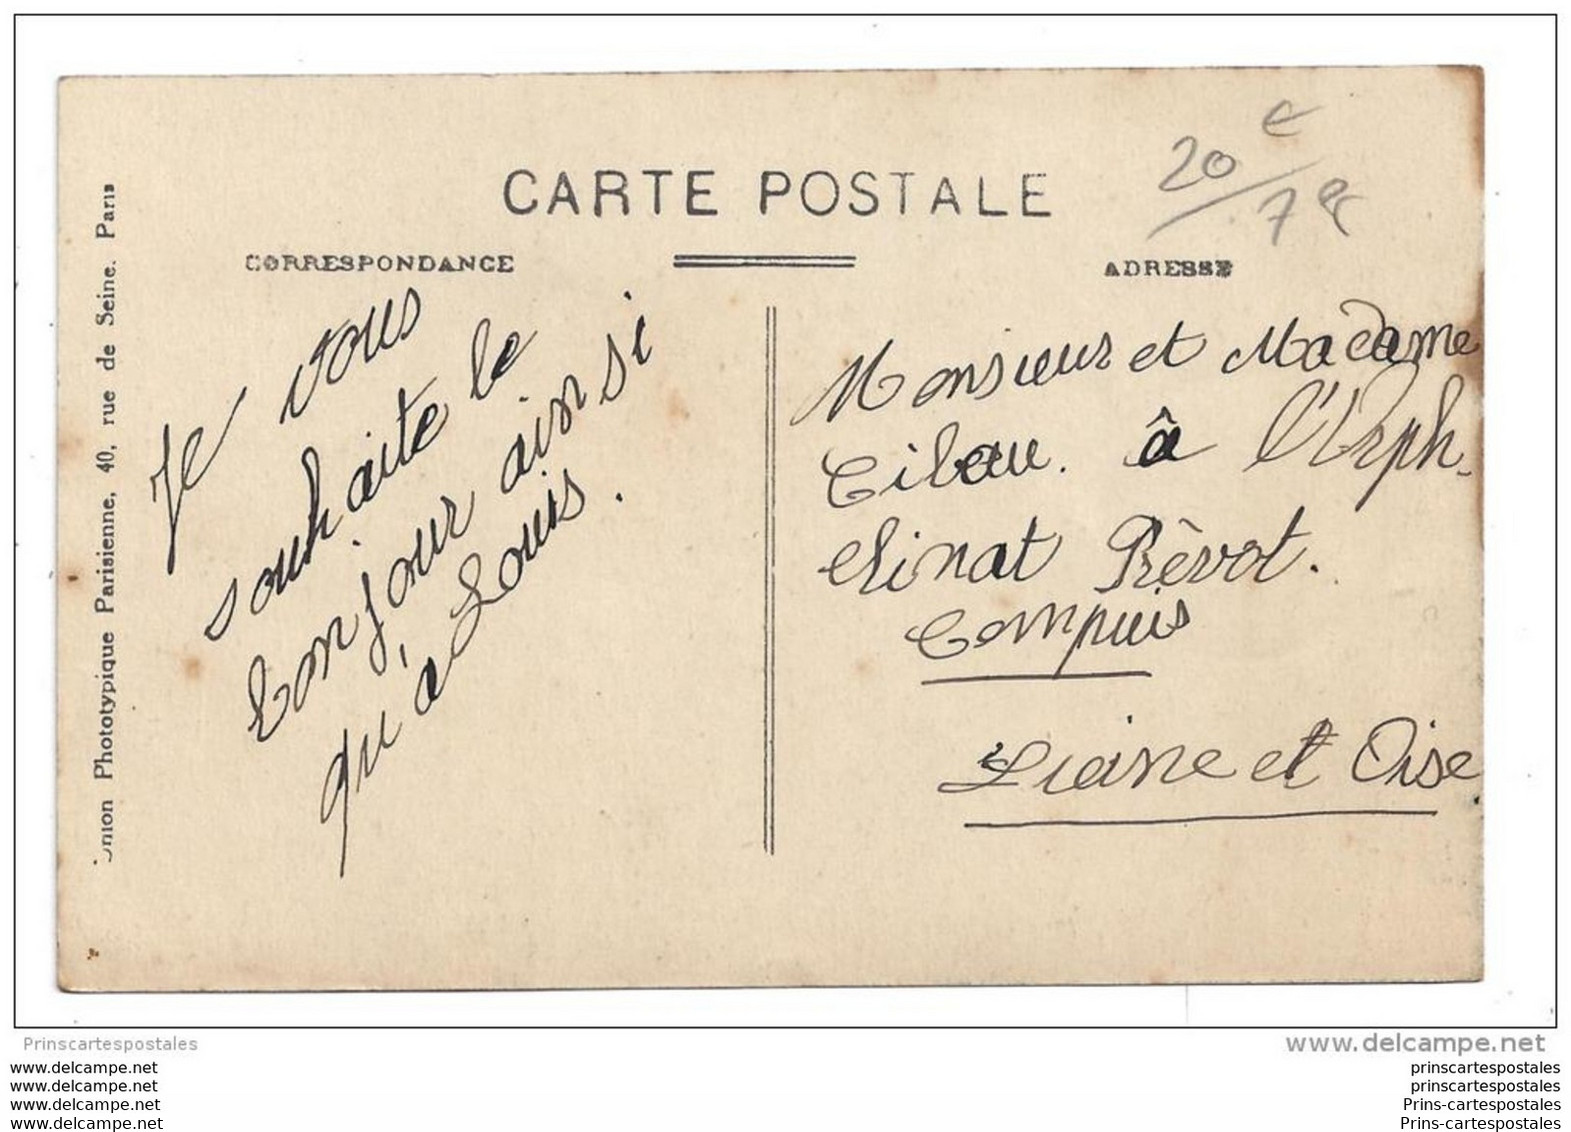 CARTE POSTALE
20 €
7 €
CORRESPONDANCE
ADRESSE
Union Phototypique Parisienne, 40, rue de Seine. Paris
Je vous
souhaite le
bonjour ainsi
qu'a Louis.
Monsieur et Madame
Tibau. â l'Orph-
elinat Prèvot.
Compuis
Seine et Oise
Prinscartespostales
www.delcampe.net
www.delcampe.net
www.delcampe.net
www.delcampe.net
www.delcampe.net
prinscartespostales
prinscartespostales
Prins-cartespostales
Prins-cartespostales